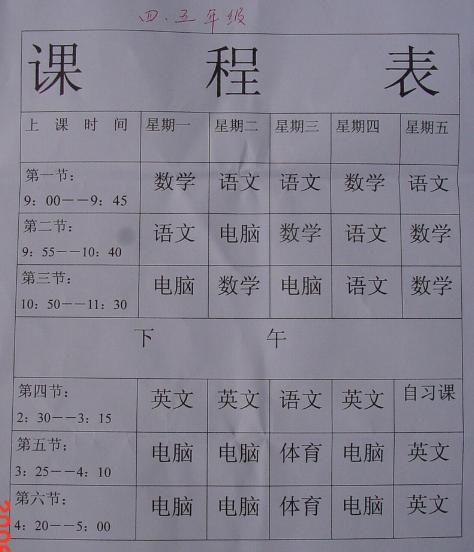 四.五年级
课程表
上课时间 星期一 星期二 星期三 星期四 星期五
第一节: 数学 语文 语文 数学 语文
9:00——9:45
第二节: 语文 电脑 数学 语文 数学
9:55——10:40
第三节: 电脑 数学 电脑 语文 数学
10:50——11:30
下午
第四节: 英文 英文 语文 英文 自习课
2:30——3:15
第五节: 电脑 电脑 体育 电脑 英文
3:25——4:10
第六节: 电脑 电脑 体育 电脑 英文
4:20——5:00